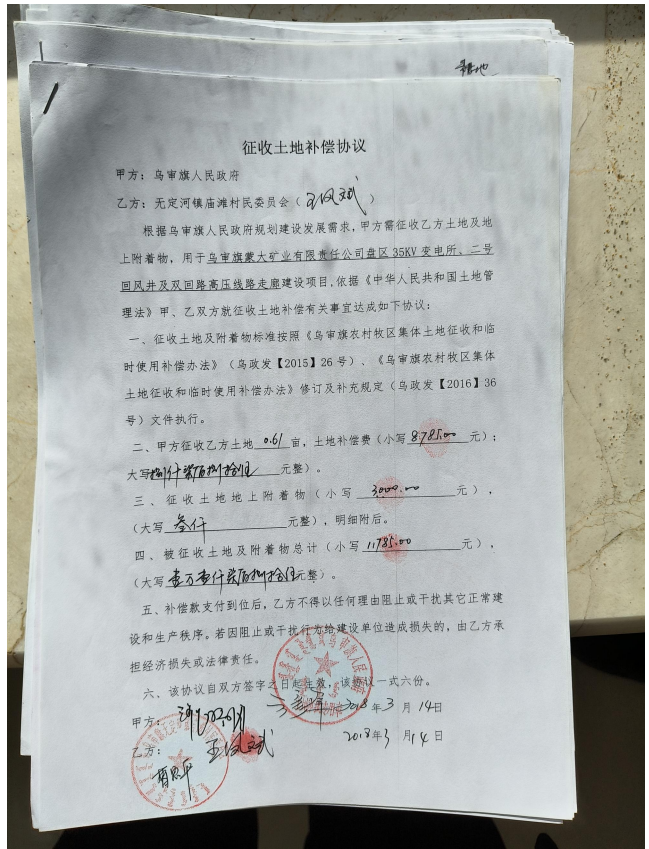 租地
征收土地补偿协议
甲方：乌审旗人民政府
乙方：无定河镇庙滩村民委员会（王凤斌）
根据乌审旗人民政府规划建设发展需求，甲方需征收乙方土地及地
上附着物，用于乌审旗蒙大矿业有限责任公司盘区35KV变电所、二号
回风井及双回路高压线路走廊建设项目，依据《中华人民共和国土地管
理法》甲、乙双方就征收土地补偿有关事宜达成如下协议：
一、征收土地及附着物标准按照《乌审旗农村牧区集体土地征收和临
时使用补偿办法》（乌政发【2015】26号）、《乌审旗农村牧区集体
土地征收和临时使用补偿办法》修订及补充规定（乌政发【2016】36
号）文件执行。
二、甲方征收乙方土地0.61亩，土地补偿费（小写8785.00元）；
大写捌仟柒佰捌拾伍元整）。
三、征收土地地上附着物（小写3000.00元），
（大写叁仟元整），明细附后。
四、被征收土地及附着物总计（小写11785.00元），
（大写壹万壹仟柒佰捌拾伍元整）。
五、补偿款支付到位后，乙方不得以任何理由阻止或干扰其它正常建
设和生产秩序。若因阻止或干扰行为给建设单位造成损失的，由乙方承
担经济损失或法律责任。
六、该协议自双方签字之日起生效，该协议一式六份。
甲方： 2018年3月14日
乙方：王凤斌 2018年3月14日